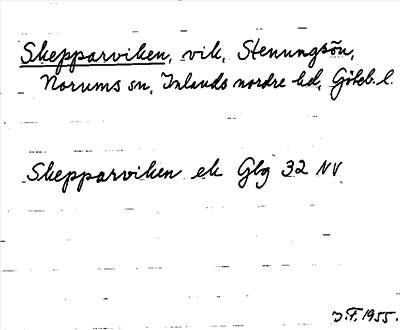 Skepparviken, vik, Stenungsön,
Norums sn, Inlands nordre hd, Göteb. l.
Skepparviken ek Gbg 32 NV
J.F. 1955.